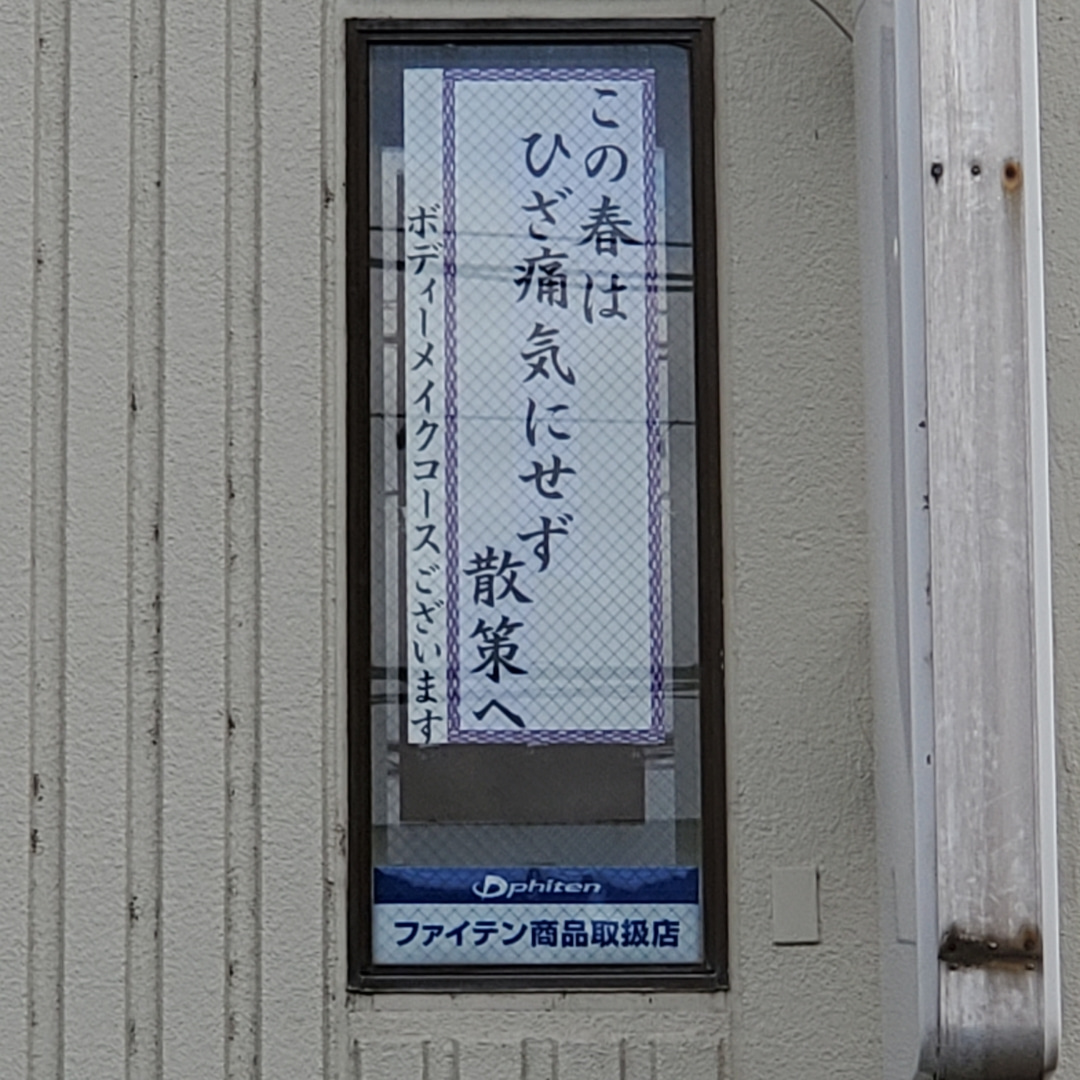 この春は
ひざ痛気にせず
散策へ
ボディーメイクコースございます
phiten
ファイテン商品取扱店